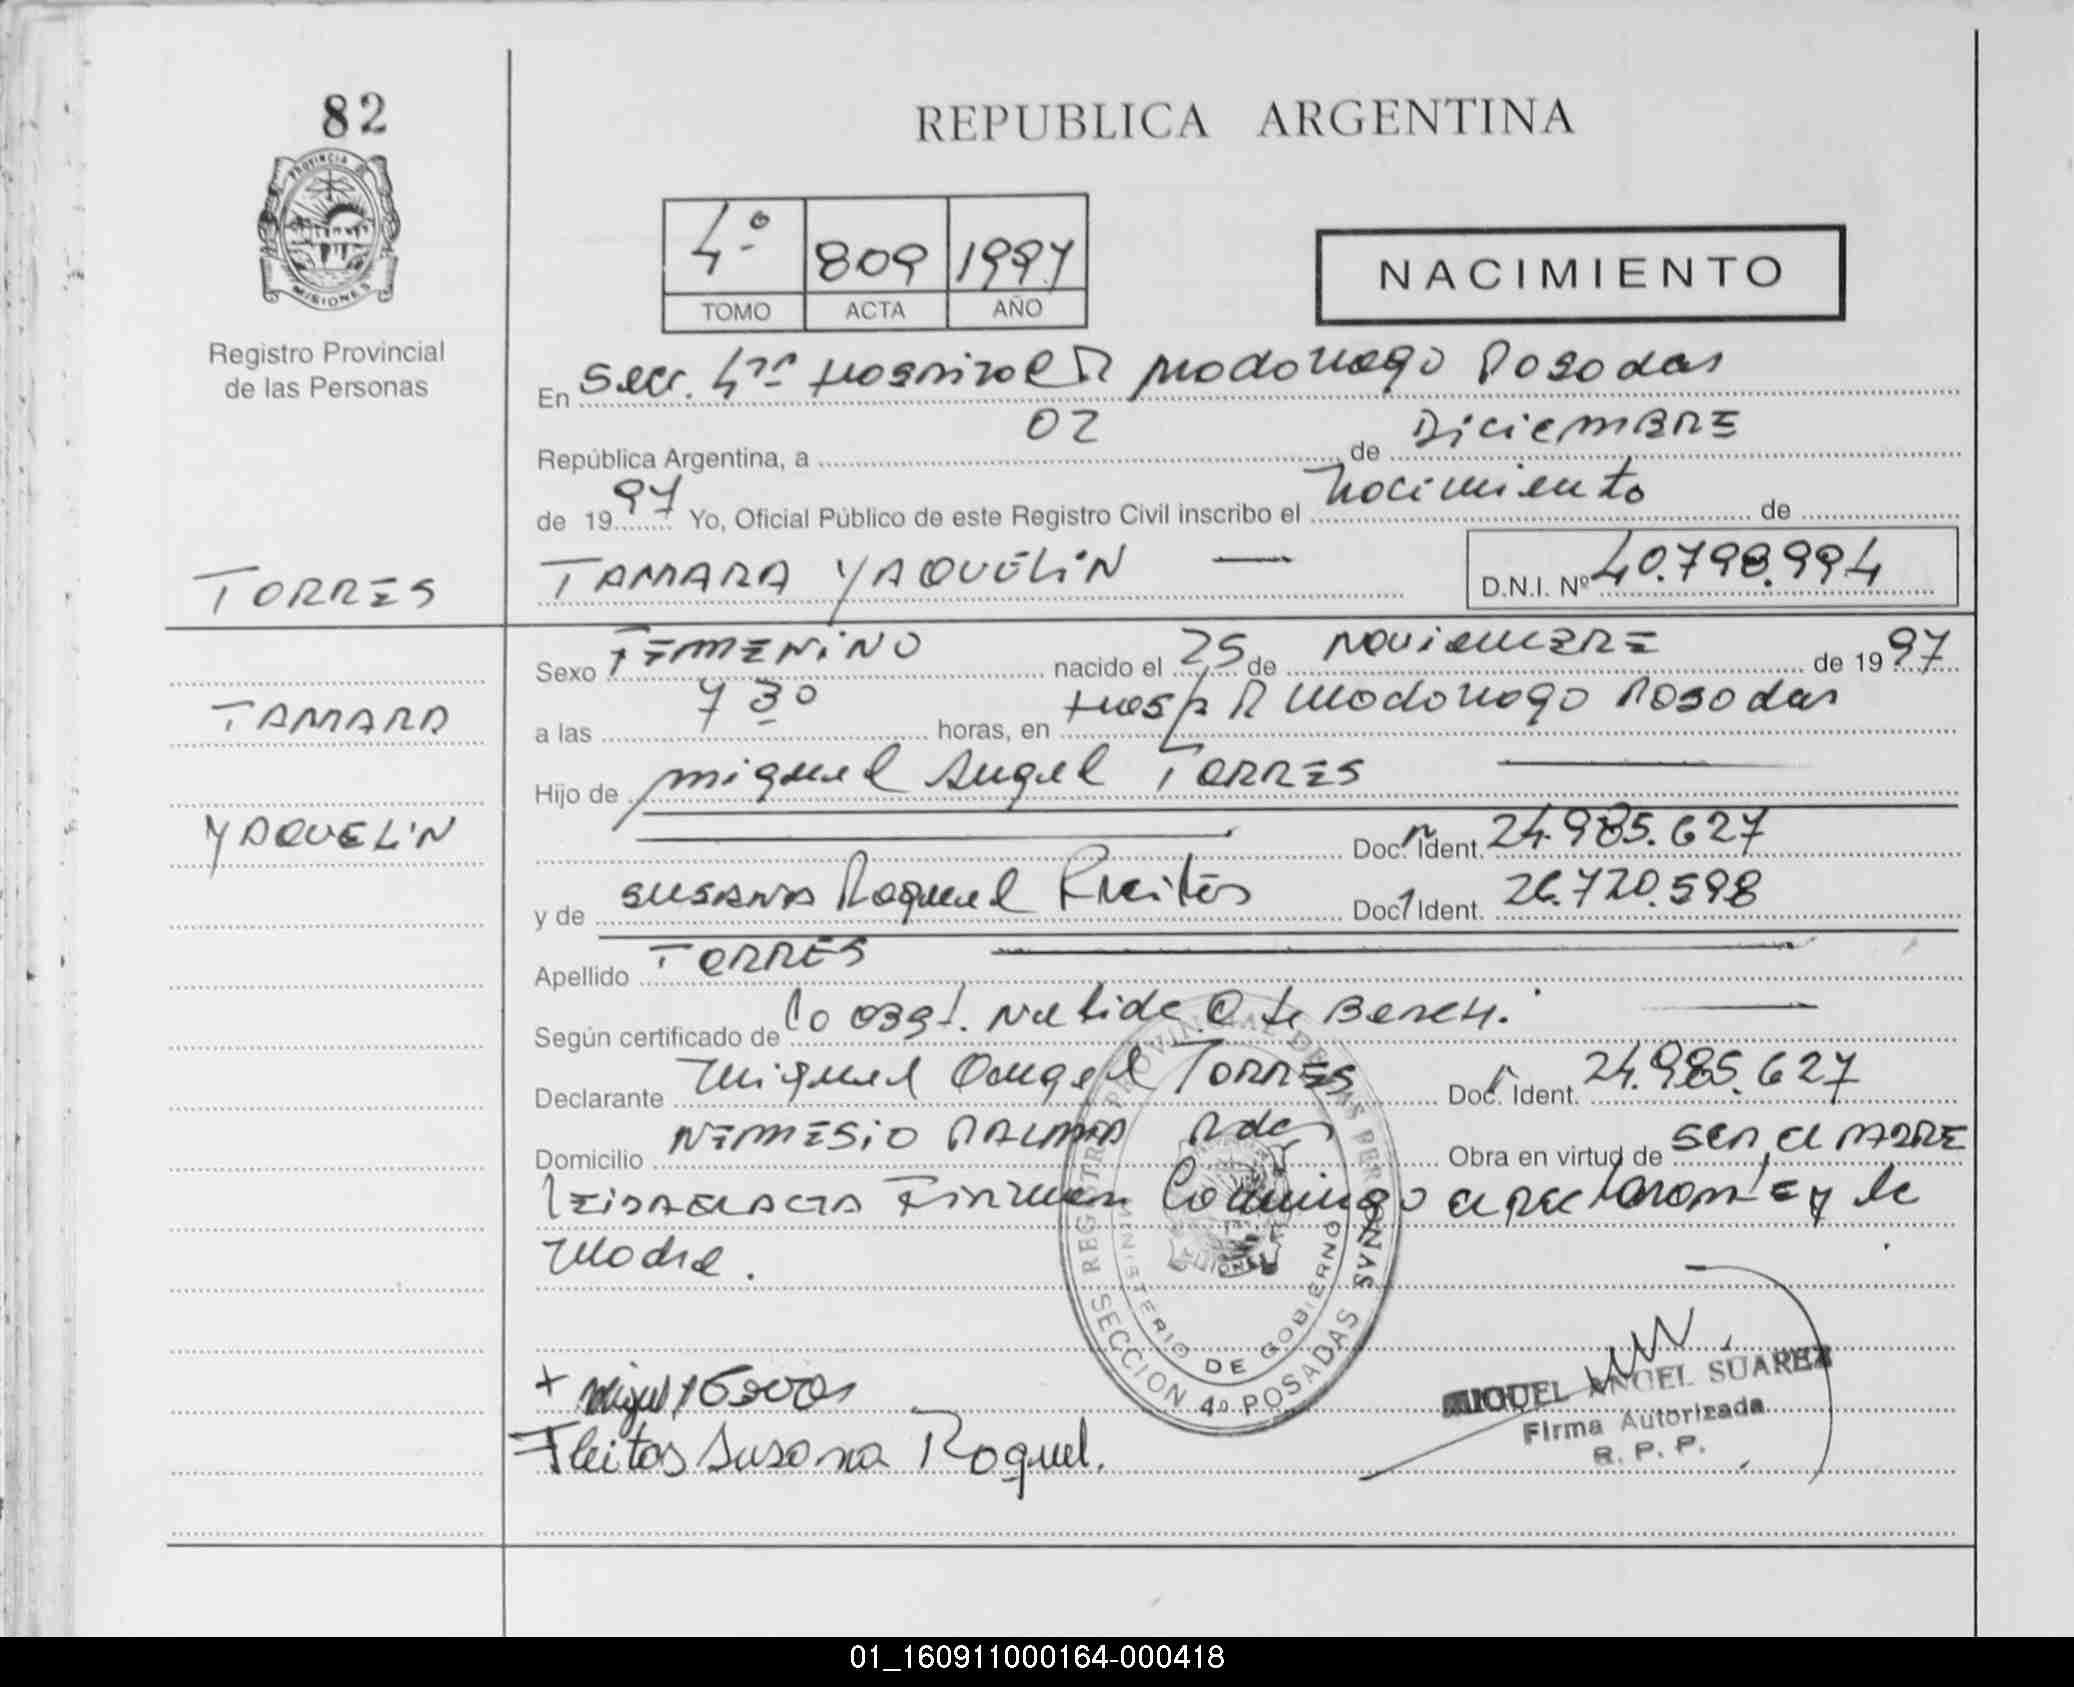 82
REPUBLICA ARGENTINA
PROVINCIA DE
MISIONES
Registro Provincial
de las Personas
4º 809 1997
TOMO ACTA AÑO
NACIMIENTO
En Secc. 4ta Hospital R Madariaga Posadas
República Argentina, a 02 de Diciembre
de 1997 Yo, Oficial Público de este Registro Civil inscribo el Nacimiento de
TORRES
TAMARA YAQUELIN — D.N.I. Nº 40.798.994
Sexo FEMENINO nacido el 25 de NOVIEMBRE de 1997
TAMARA
a las 7 30 horas, en Hosp R Madariaga Posadas
Hijo de Miguel Angel TORRES
YAQUELIN
Doc. Ident. 24.985.627
y de SUSANA Raquel Fleitas Doc. Ident. 26.720.598
Apellido TORRES
Según certificado de la Obst. Nelida
Declarante Miguel Angel TORRES Doc. Ident. 24.985.627
Domicilio NEMESIO PALMA Pdas Obra en virtud de Ser el PADRE
Firman Conmigo el declarante y la
Madre.
REGISTRO PROVINCIAL DE LAS PERSONAS
MINISTERIO DE GOBIERNO
SECCION 4º POSADAS
MIGUEL ANGEL SUAREZ
Firma Autorizada
R. P. P.
+ Miguel
Fleitas Susana Raquel.
01_160911000164-000418